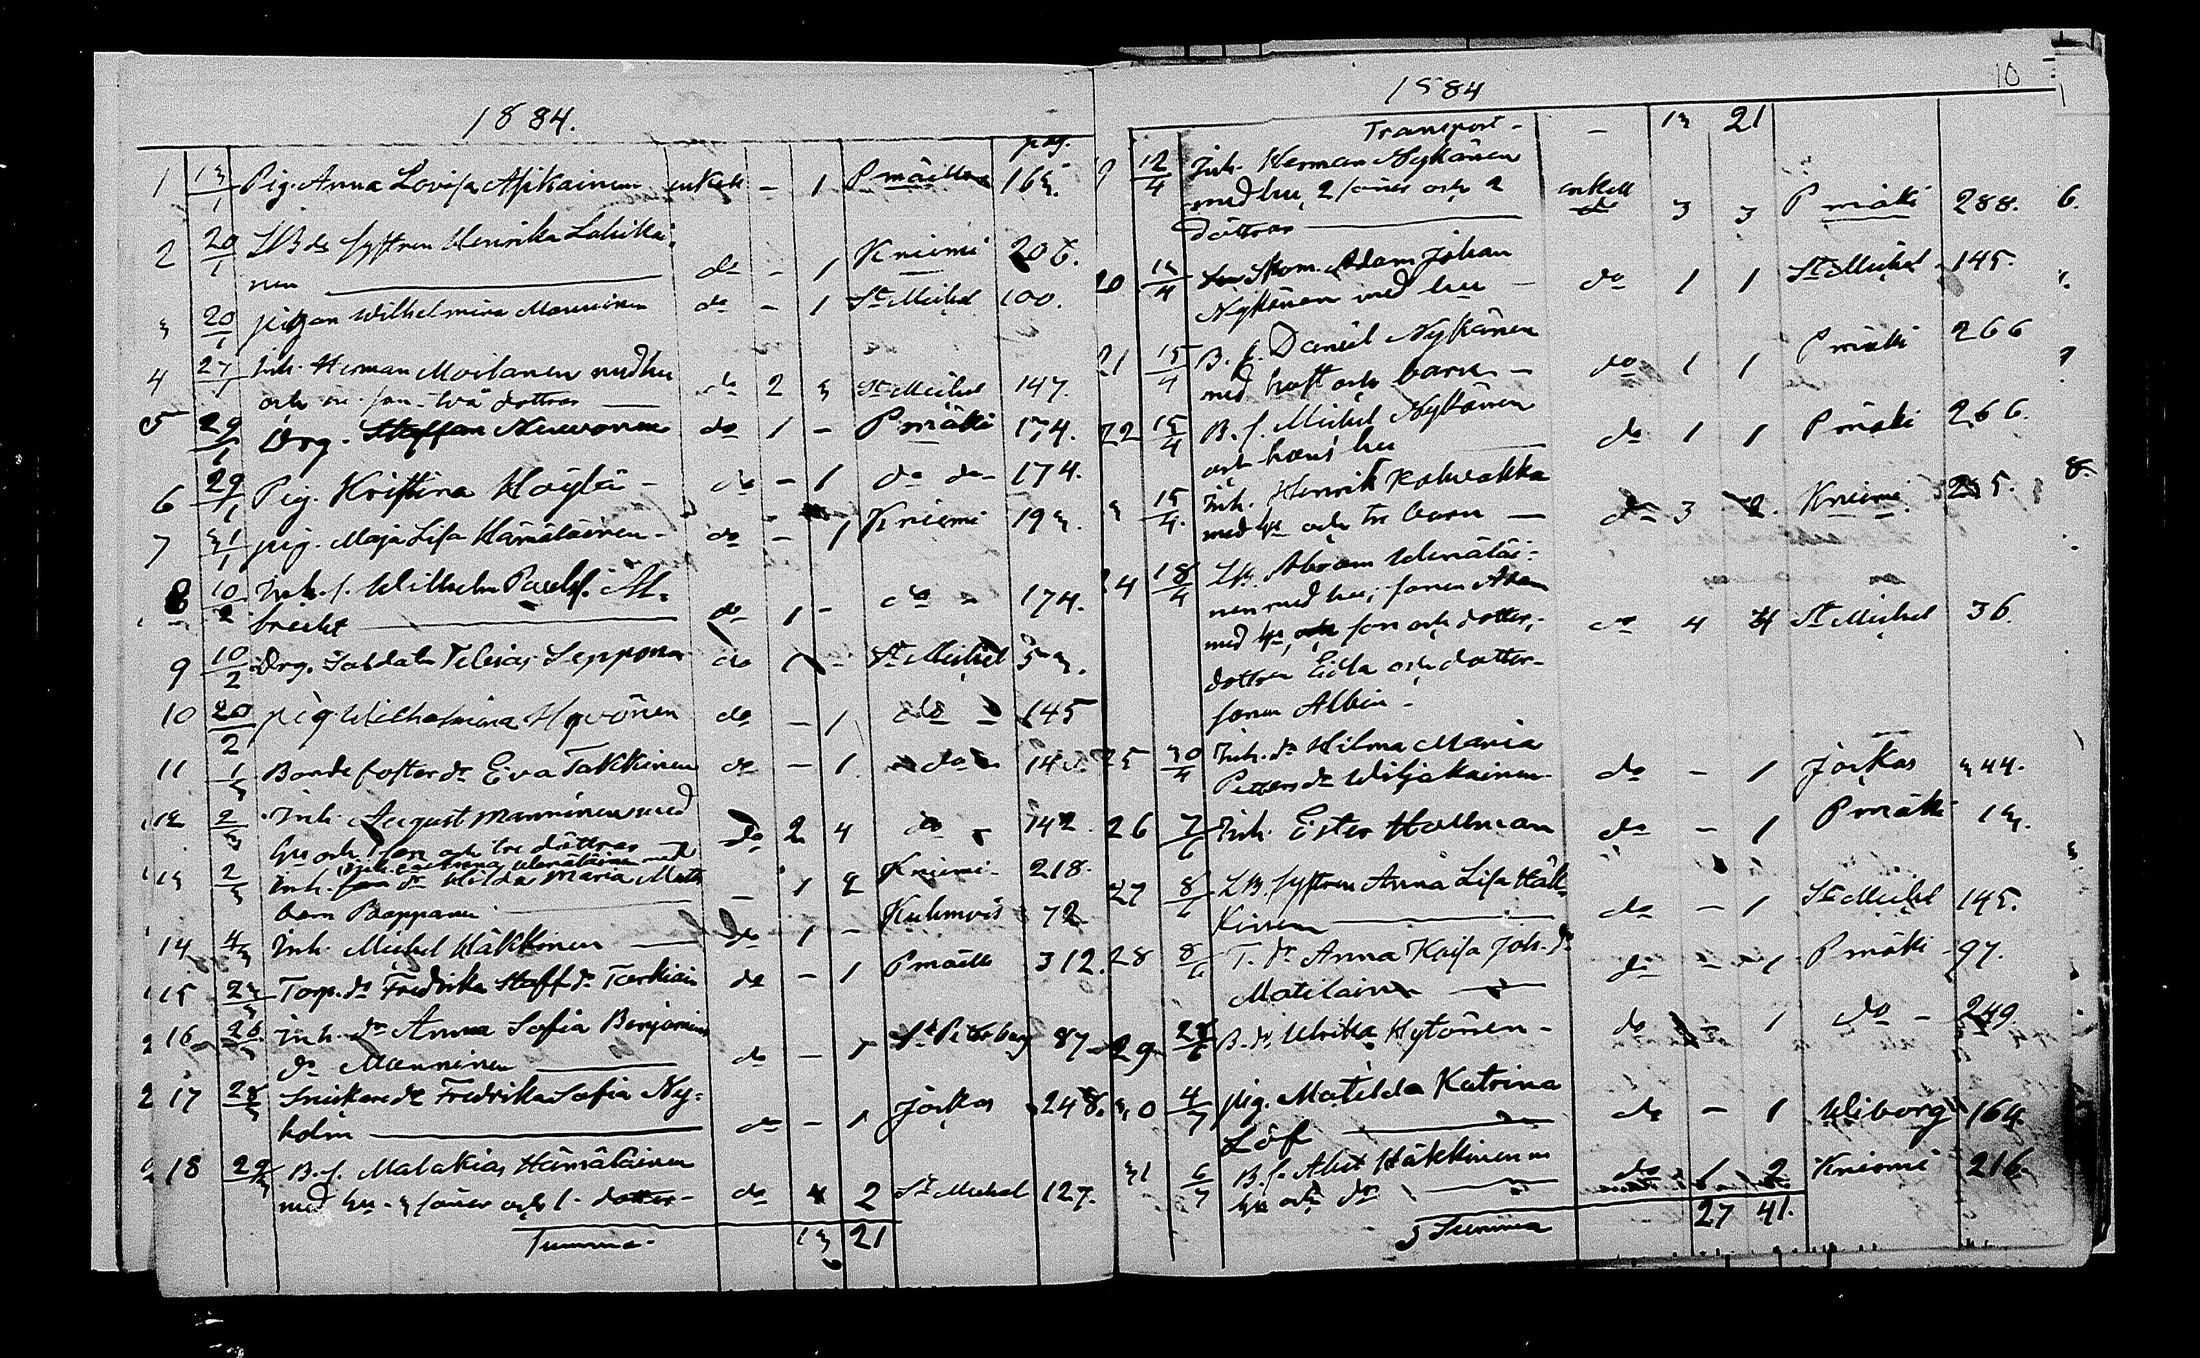 1884.
pag.
1 13/1 Pig. Anna Lovisa Asikainen enkelt - 1 Pmäki 163.
2 20/1 LB ds systren Henrika Lahikai-
nen do - 1 Kniemi 206.
3 20/1 pigan Wilhelmina Manninen do - 1 St Michel 100.
4 27/1 Inh. Herman Moilanen med hu
och en son två döttrar do 2 3 St Michel 147.
5 29/1 Drg. Staffan Nuuvonen do 1 - Pmäki 174.
6 29/1 Pig. Kristina Höylä - do - 1 do do 174.
7 31/1 pig. Maja Lisa Hämäläinen - do - 1 Kniemi 193.
8 10/2 Inh. s. Wilhelm Paul Al-
brecht do 1 - do 174.
9 10/2 Drg. Soldat Sepponen do 1 - St Michel 53.
10 20/2 pig Wilhelmina Hyvönen do - 1 do - 145
11 1/3 Bonde foster dr Eva Takkinen do - 1 do 14
12 2/3 Inh. August Manninen med
hu och 1 son och tre döttrar do 2 4 do - 142.
13 2/3 Inh. dr Hilda Maria
barn Pappanen - 1 2 Kniemi - 218.
14 4/3 Inh. Michel Häkkinen do 1 - Kuhmois 72
15 23/3 Torp. dr Fredrika Staff dr Tarkiai do - 1 Pmäki 312.
16 26/3 Inh. dr Anna Sofia Benjamins
dr Manninen do - 1 St Petersburg 87
17 28/3 Snickare dr Fredrika Sofia Ny-
holm do - 1 Jockas 248.
18 29/3 B. s. Malakias Hämäläinen
med hu - 3 söner och 1 dotter - do 4 2 St Michel 127.
Summa - 13 21
10
1884
Transport - - 13 21
12/4 Inh. Herman Nykänen
med hu, 2 söner och 2
döttrar enkelt 3 3 Pmäki 288. 6.
20 12/4 Skom. Adam Johan
Nykänen med hu - do 1 1 St Michel 145.
21 15/4 B. s. Daniel Nykänen
med hust och barn - do 1 1 Pmäki 266
22 15/4 B. s. Michel Nykänen
och hans hu do 1 1 Pmäki 266.
3 15/4 Inh. Henrik Kolvakka
med hu och tre barn - do 3 2. Kniemi 8
24 18/4 LB. Abram Wenäläi-
nen med hu, sonen Adam
med hu, son och dotter,
dottren Eida och dotter-
sonen Albin - do 4 4 St Michel 36.
25 30/4 Inh. dr Hilma Maria
Petters dr Wiljakainen do - 1 Jockas 344.
26 7/6 Inh. Ester Hallman do - 1 Pmäki 13.
27 8/6 LB. systren Anna Lisa Häk-
kinen do - 1 St Michel 145.
28 8/6 T. dr Anna Kaisa Joh. dr
Matilainen do - 1 Pmäki 97.
29 28/6 B. dr Ulrika Hytönen - do 1 do - 249
30 4/7 pig. Matilda Katrina
Löf do - 1 Wiborg 164.
31 6/7 B. s. Abel Häkkinen m
hu och dr do 1 2 Kniemi 216.
Summa 27 41.